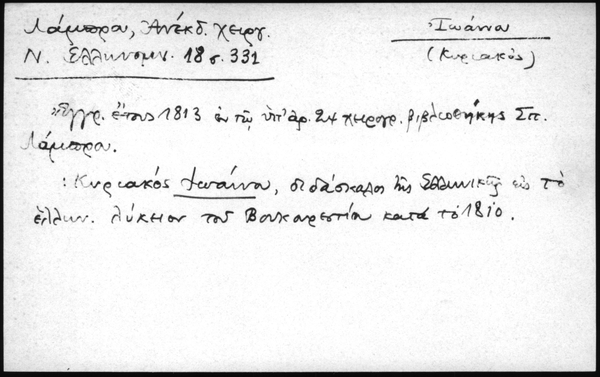 Λάμπρου, Ἀνέκδ. χειργ.
Ν. Ἑλληνομν. 18 σ. 331
Ἰωάννου
(Κυριακός)
Ἔγγρ. ἔτους 1813 ἐν τῷ ὑπ' ἀρ. 24 χειρογρ. βιβλιοθήκης Σπ.
Λάμπρου.
: Κυριακός Ἰωάννου, διδάσκαλος τῆς Ἑλληνικῆς εἰς τὸ
ἑλλην. λύκειον τοῦ Βουκουρεστίου κατά τό 1810.